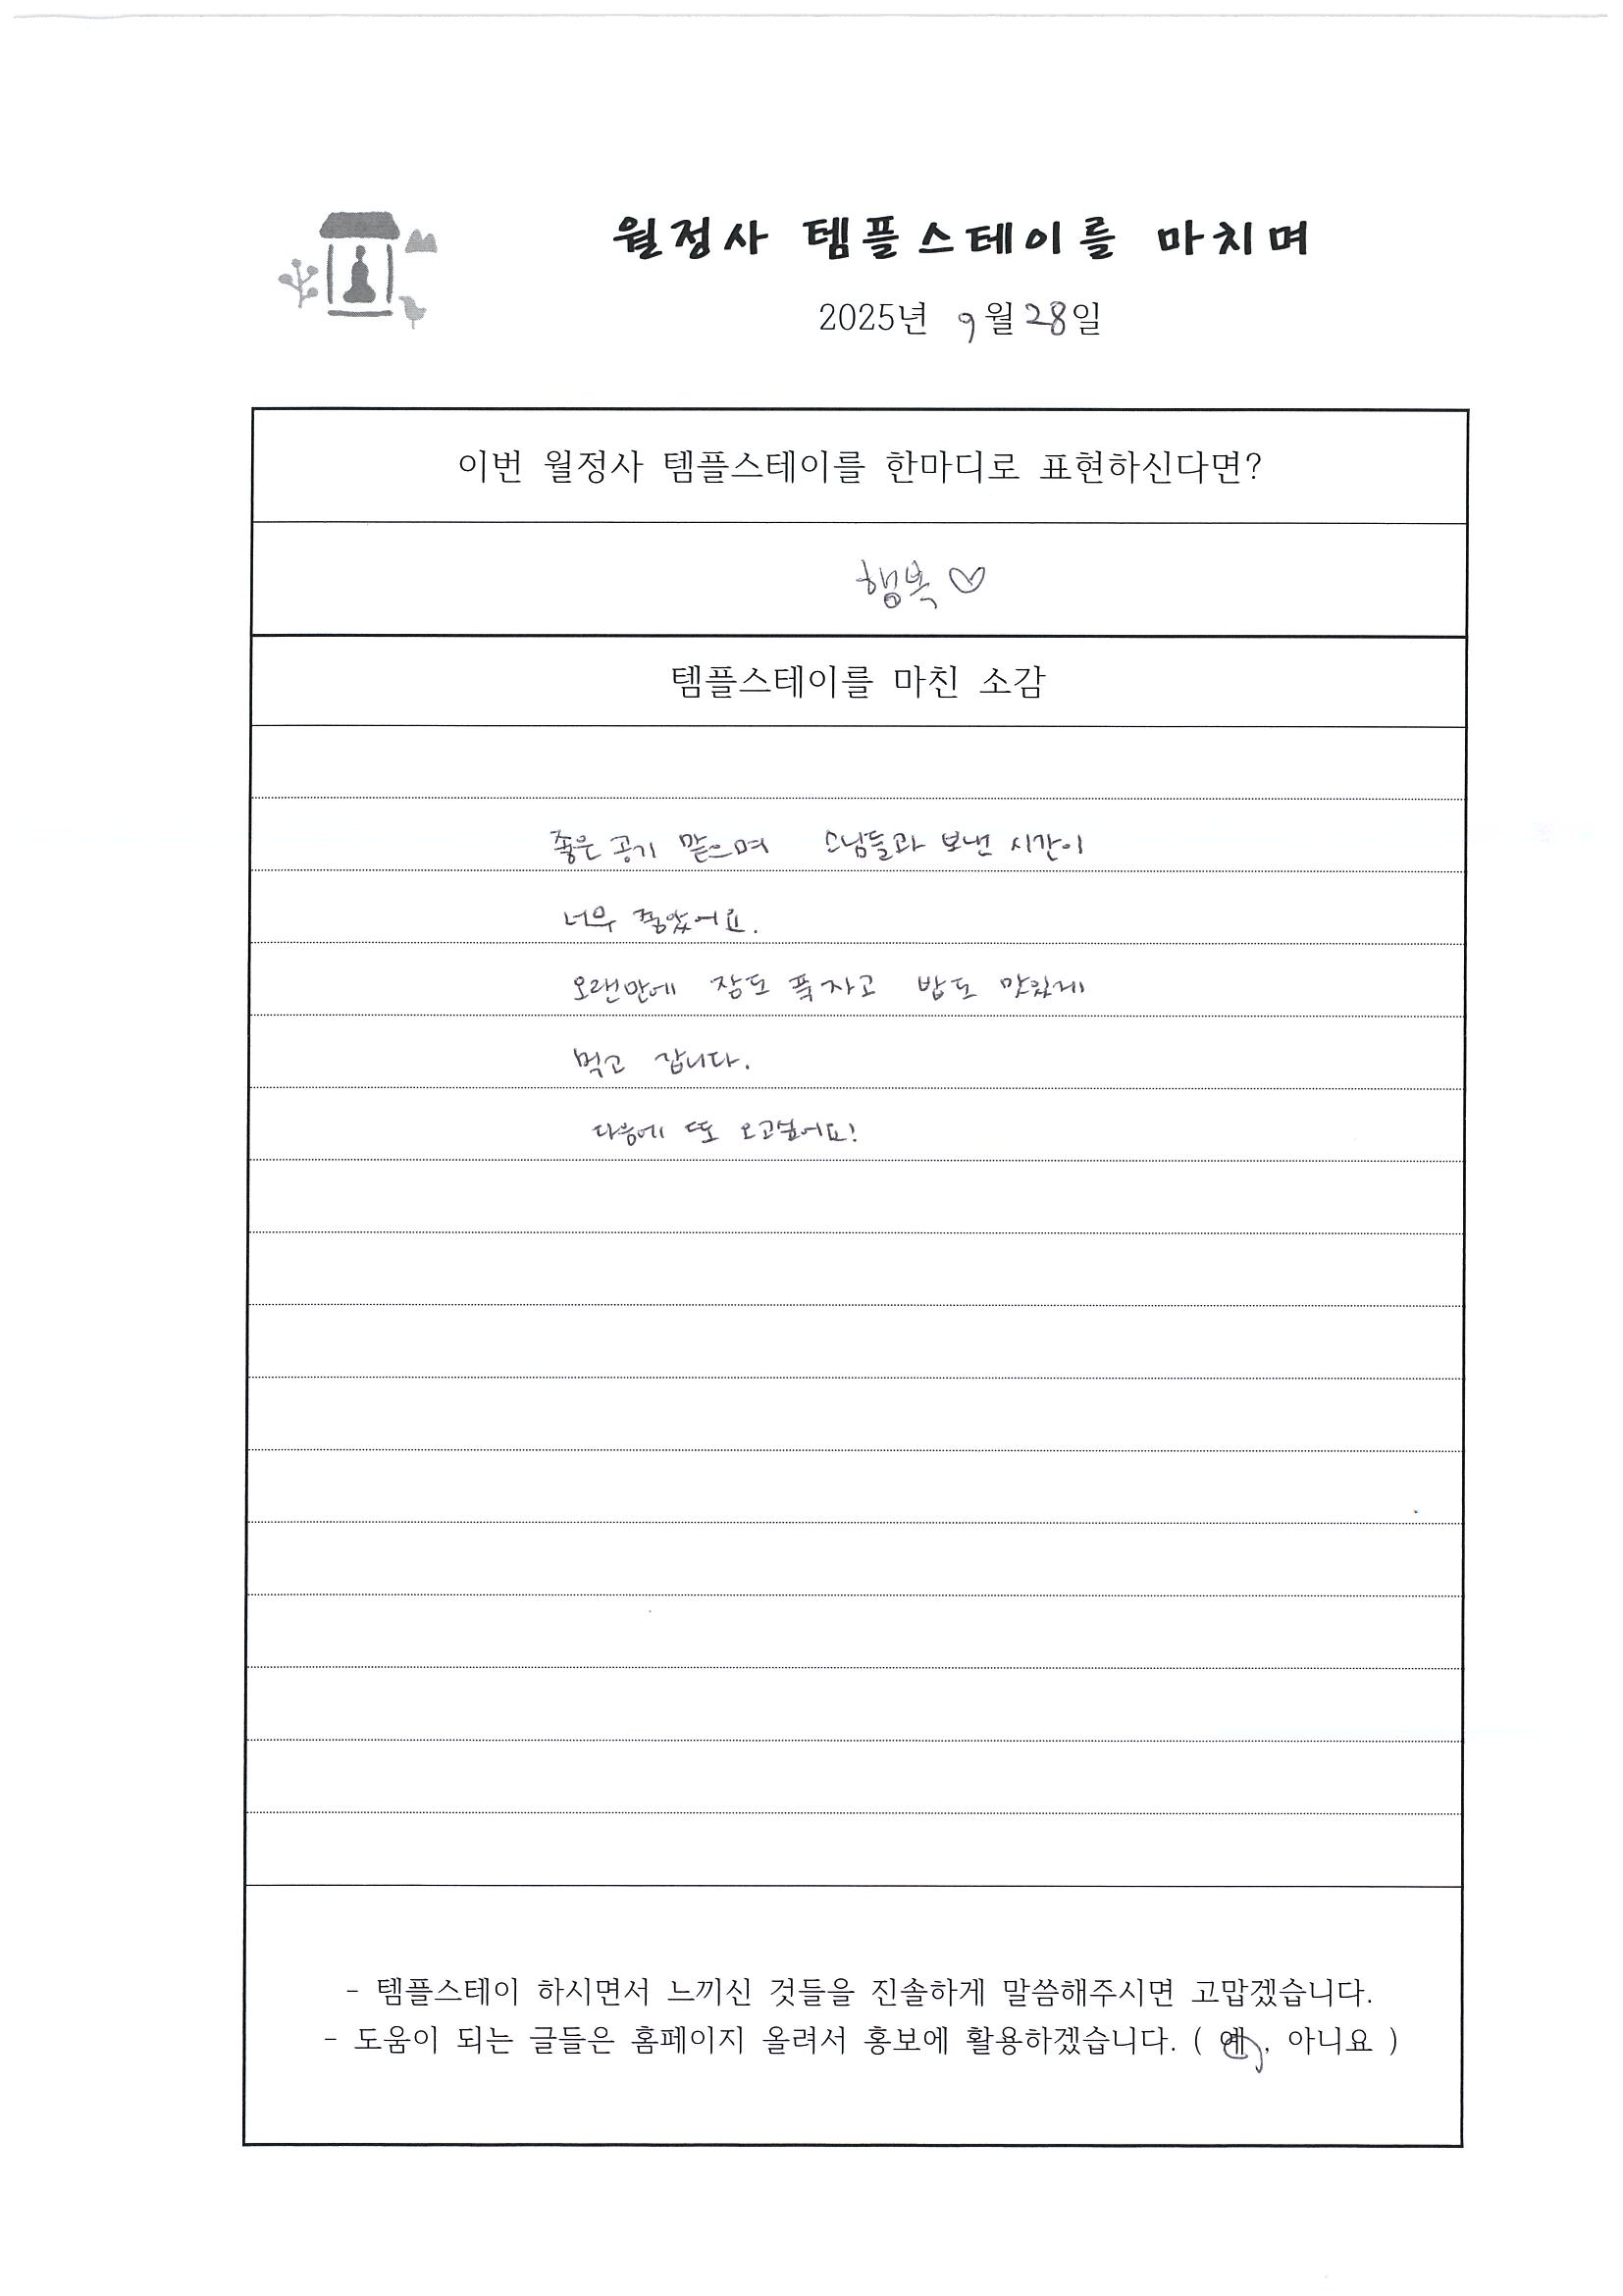 월정사 템플스테이를 마치며
2025년 9월 28일
이번 월정사 템플스테이를 한마디로 표현하신다면?
행복♡
템플스테이를 마친 소감
좋은 공기 맡으며 스님들과 보낸 시간이
너무 좋았어요.
오랜만에 잠도 푹자고 밥도 맛있게
먹고 갑니다.
다음에 또 오고싶어요!
- 템플스테이 하시면서 느끼신 것들을 진솔하게 말씀해주시면 고맙겠습니다.
- 도움이 되는 글들은 홈페이지 올려서 홍보에 활용하겠습니다. ( 예 , 아니요 )